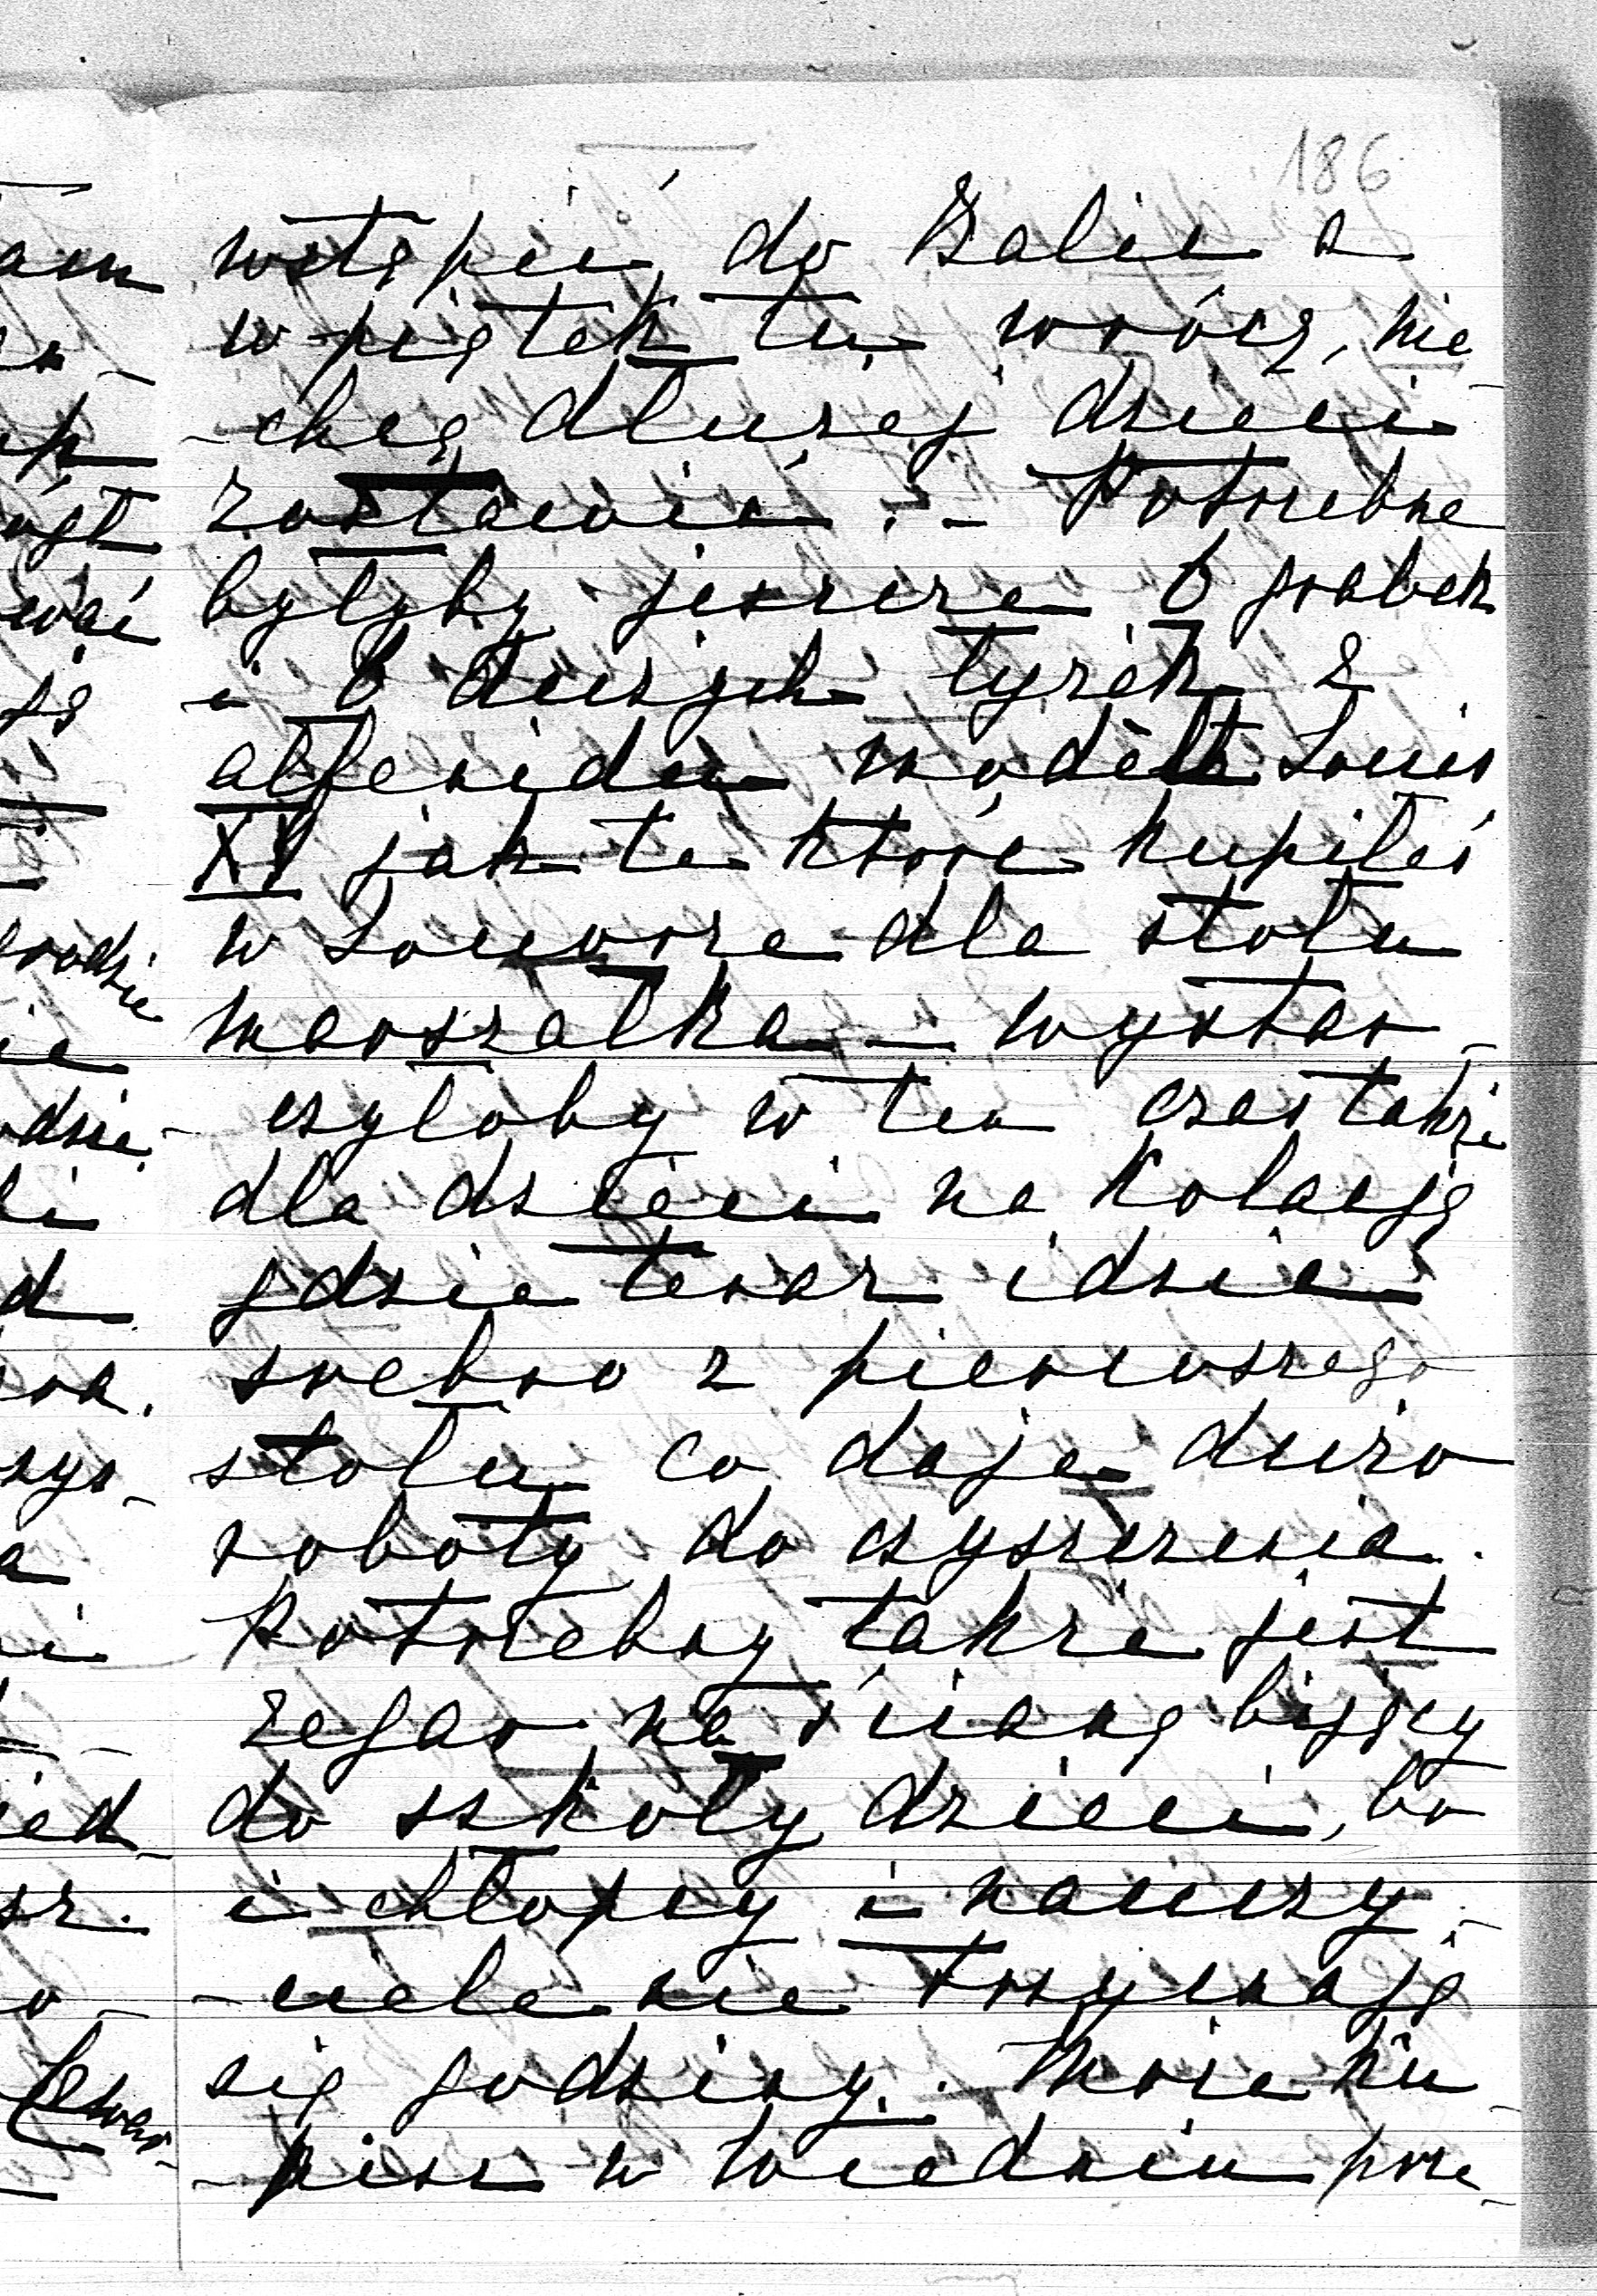 186
wstąpić do Balic a
w piątek tu wrócę, nie
-chcę dłużej dzieci
zostawić. - Potrzebne
byłyby jeszcze 6 grabek
i 6 dużych łyżek z
alfenidu modèle Louis
XV jak te które kupiłeś
w Louvrze dla stołu
marszałka - wystar-
-czyłoby w ten czas także
dla dzieci na kolację
gdzie teraz idzie
srebro z pierwszego
stołu co daje dużo
roboty do czyszczenia.
Potrzebny także jest
zegar na ścianę bijący
do szkoły dzieci, bo
i chłopcy i nauczy-
-ciele nie trzymają
się godziny. Może ku-
-pisz w Wiedniu prze-